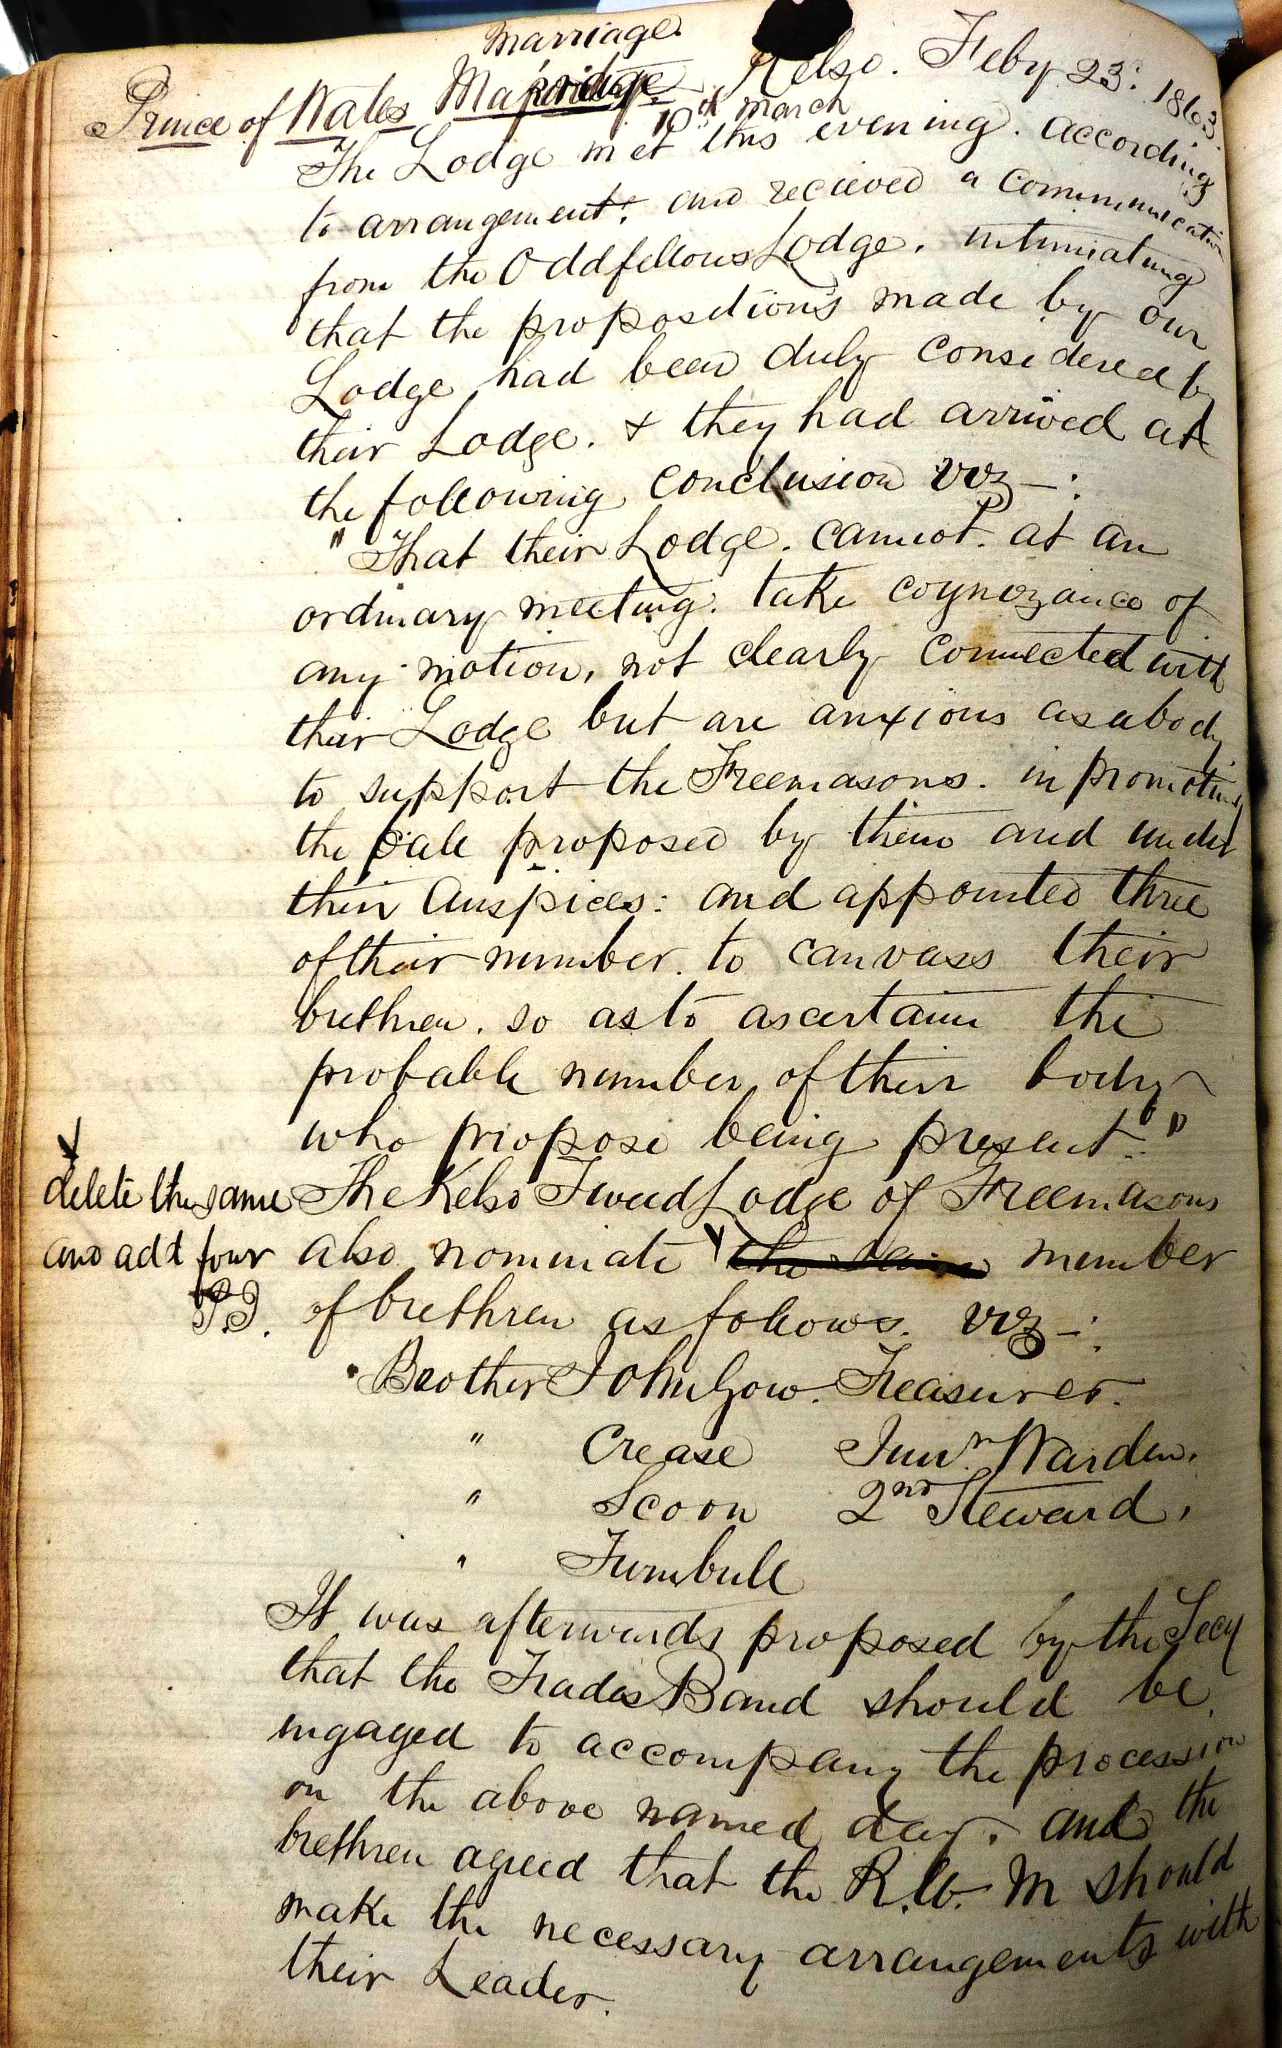 Marriage.
Kelso. Feby 23: 1863.
Prince of Wales
10th March
The Lodge met this evening. according
to arrangement; and recieved a communication
from the Oddfellows Lodge. intimating
that the propositions made by our
Lodge had been duly considered by
their Lodge. & they had arrived at
the following conclusion viz -:
"That their Lodge. cannot. at an
ordinary meeting. take cognizance of
any motion, not clearly connected with
their Lodge but are anxious as a body
to support the Freemasons. in promoting
the Ball proposed by them and under
their Auspices: and appointed three
of their number. to canvass their
brethren. so as to ascertain the
probable number of their body
who propose being present."
The Kelso Tweed Lodge of Freemasons
delete the same
and add four
P.J.
also nominate the same number
of brethren as follows. viz -:
Brother John Gow. Treasurer.
" Crease Junr. Warden.
" Scoon 2nd Steward.
" Turnbull
It was afterwards proposed by the Secy
that the Trades Band should be
engaged to accompany the procession
on the above named day. and the
brethren agreed that the R.W. M should
make the necessary arrangements with
their Leader.